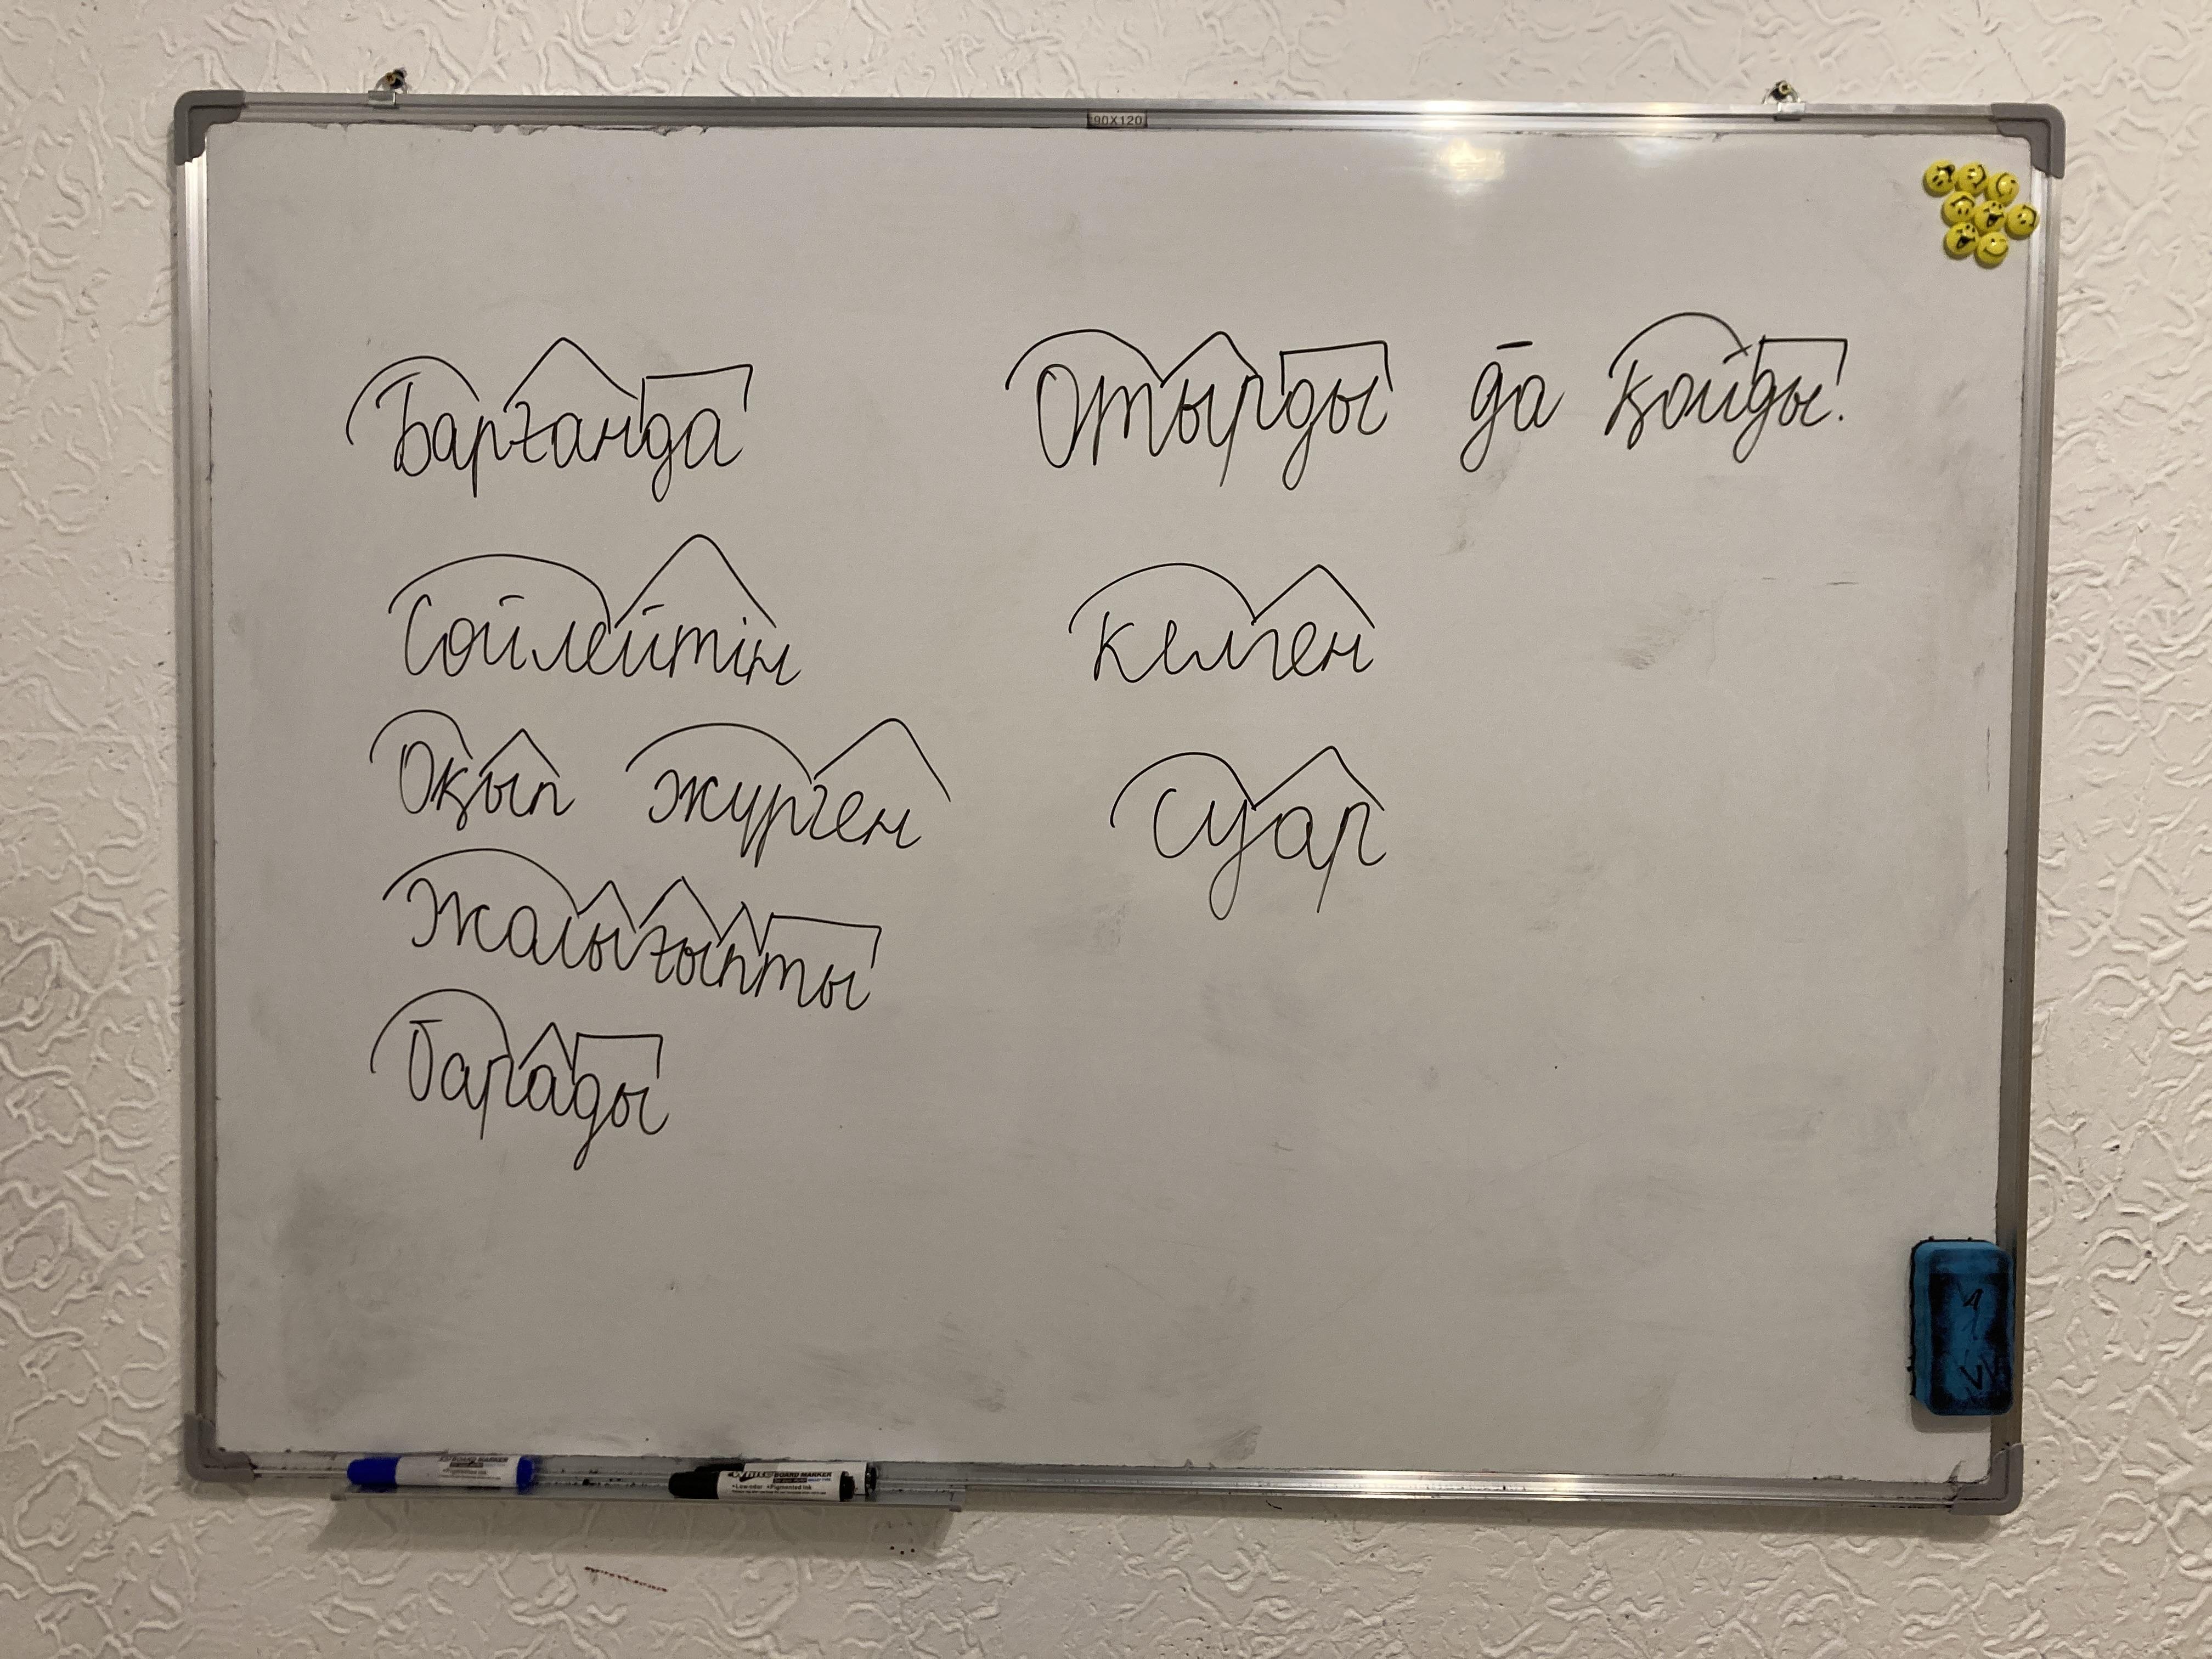 90X120
Барғанда
Сөйлейтін
Оқып жүрген
Жалығыпты
барады
Отырды да қойды.
келген
суар
BOARD MARKER
BOARD MARKER
•Low odor •Pigmented ink